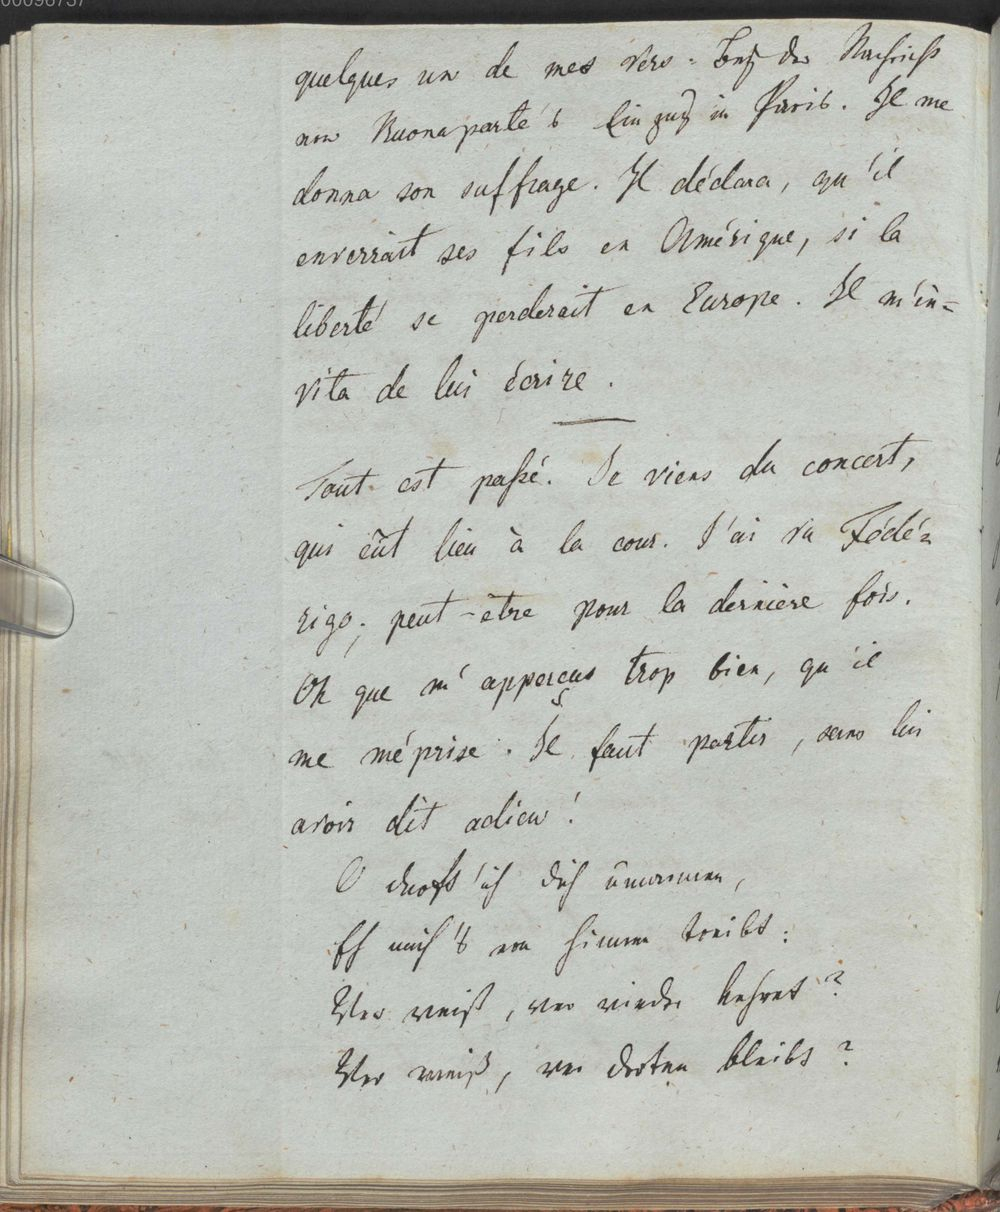 00096737
quelques un de mes vers. Bey der Nachricht
von Buonaparte's Einzug in Paris. Il me
donna son suffrage. Il déclara, qu'il
enverrait ses fils en Amérique, si la
liberté se perderait en Europe. Il m'in=
vita de lui écrire.
Tout est passé. Je viens du concert,
qui eût lieu à la cour. J'ai vu Fédé=
rigo, peut-être pour la dernière fois.
Oh que m'apperçus trop bien, qu'il
me méprise. Il faut partir, sans lui
avoir dit adieu!
O durft' ich dich umarmen,
Eh mich's von hinnen treibt:
Wer weiß, wer wieder kehret?
Wer weiß, wer dorten bleibt?